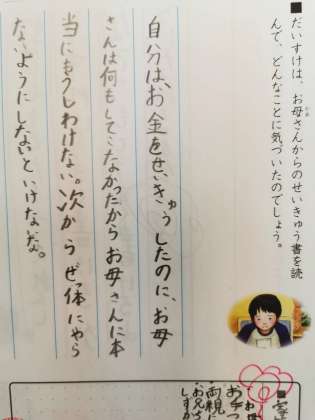 ■だいすけは、お母さんからのせいきゅう書を読
かあ
んで、どんなことに気づいたのでしょう。
自分は、お金をせいきゅうしたのに、お母
さんは何もしてこなかったからお母さんに本
当にもうしわけない。次からぜっ体にやら
ないようにしないといけないな。
■
お母
お手つ
両親に
お兄ち
しすか